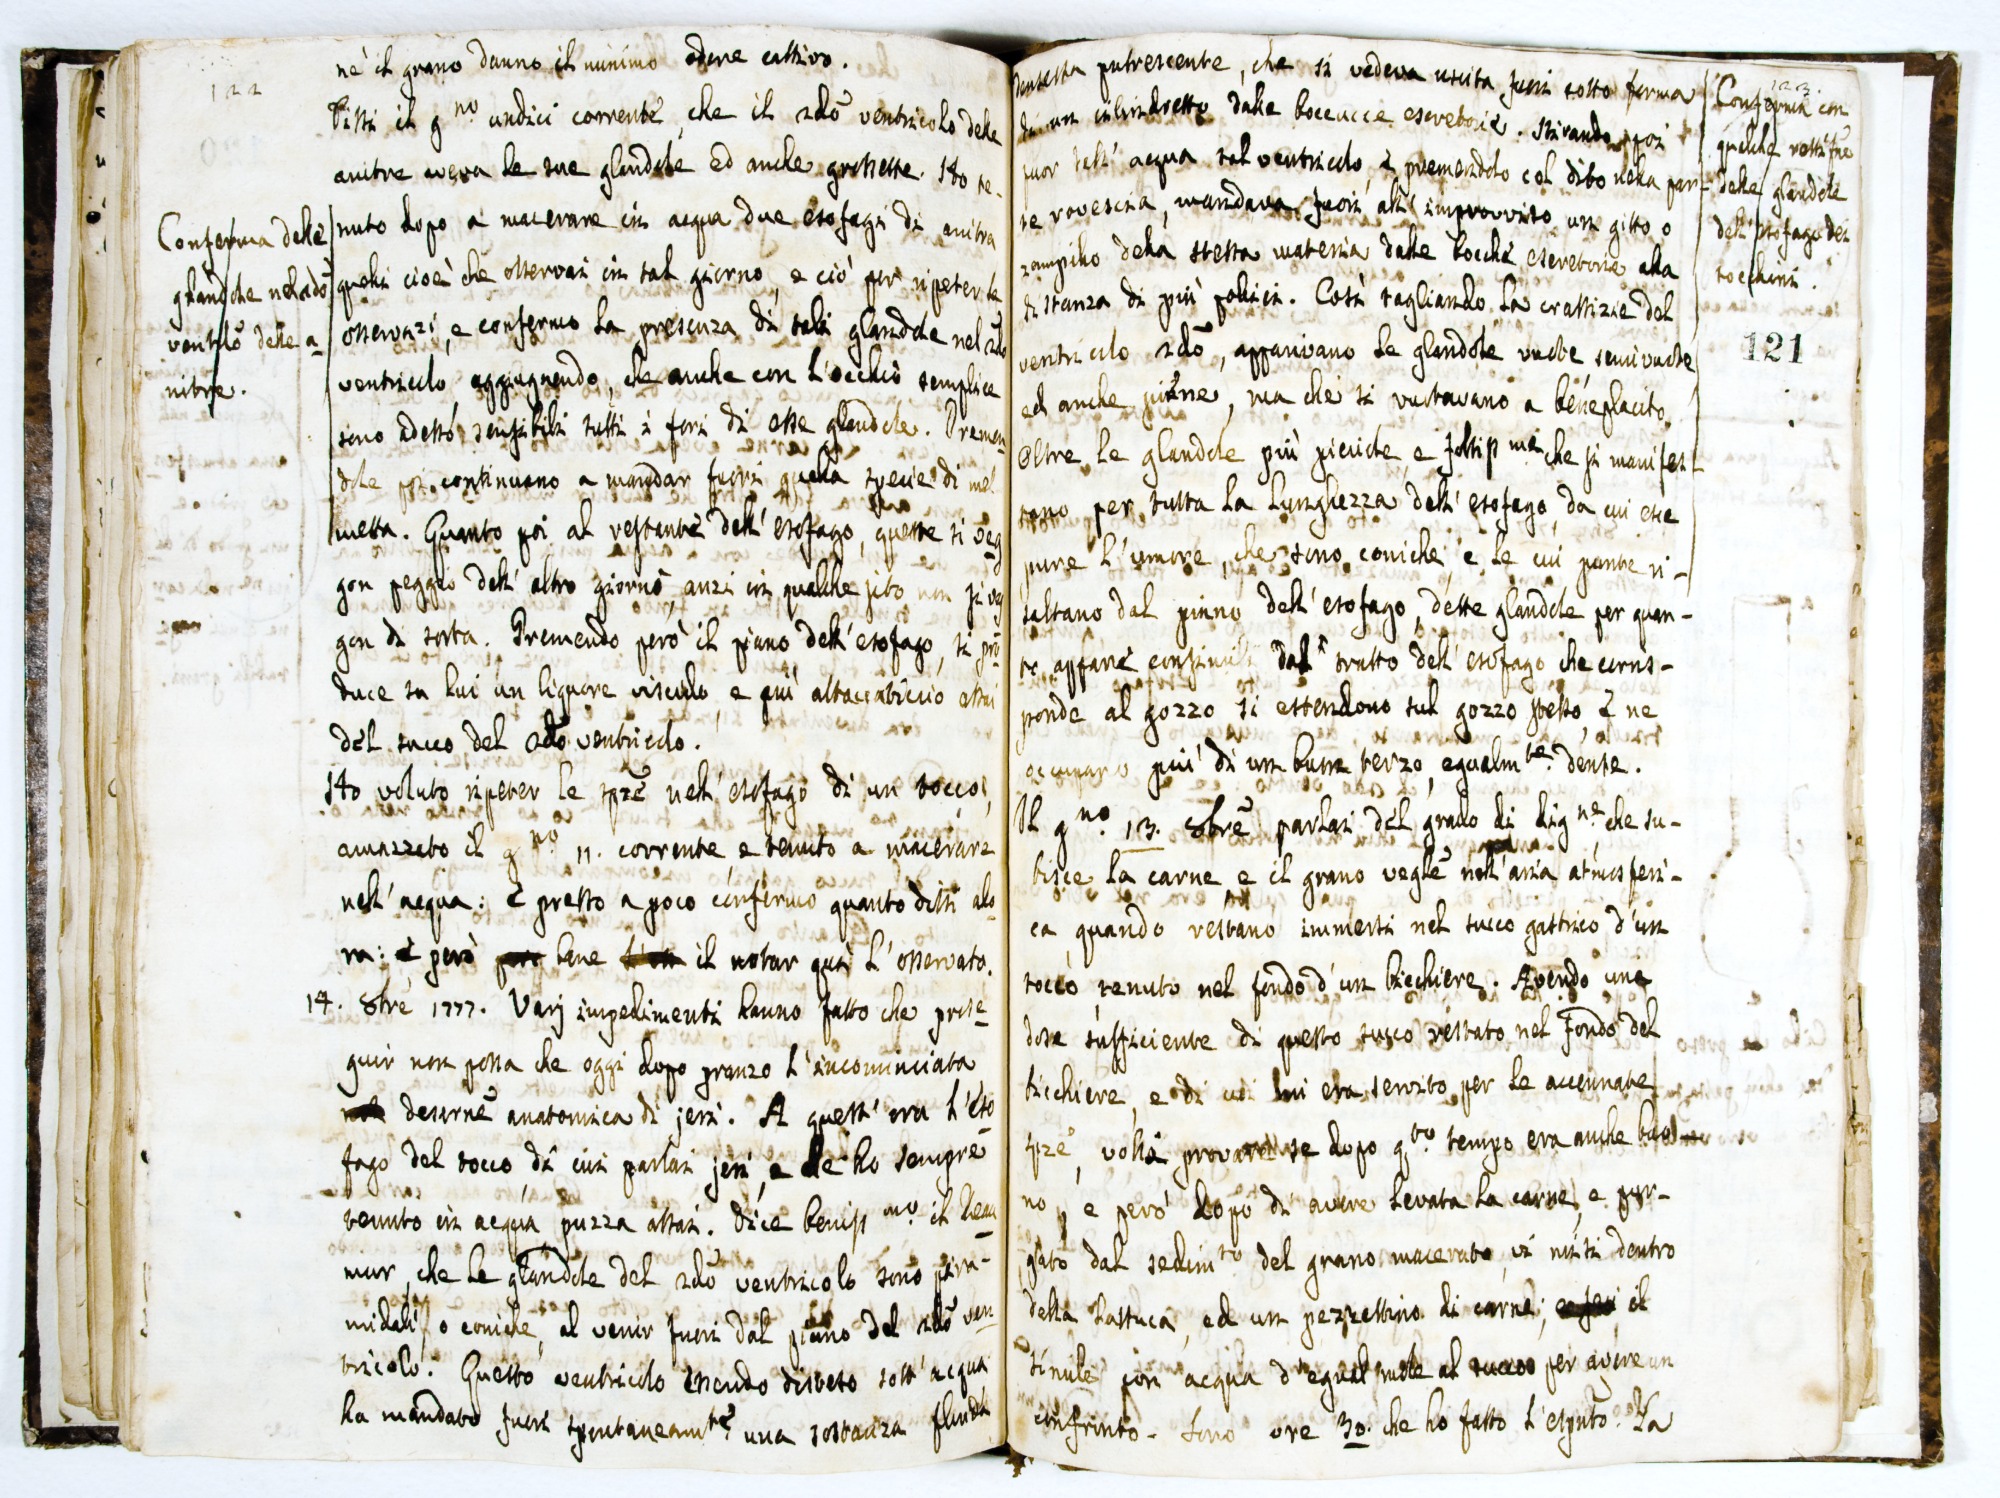 122
né il grano danno il minimo odore cattivo.
Dissi il g.no undici corrente, che il 2do ventricolo delle
anitre aveva le sue glandole ed anche grossette. Ho te-
nuto dopo a macerare in acqua due esofagi di anitra
quelli cioè che osservai in tal giorno, e ciò per ripeter le
osservazi, e confermo la presenza di tali glandole nel 2do
ventricolo, aggiugnendo, che anche con l'occhio semplice
sono adesso sensibili tutti i fori di esse glandole. Premen
dole poi continuano a mandar fuori quella specie di mel
metta. Quanto poi al restante dell'esofago, queste si veg
gon peggio dell'altro giorno, anzi in qualche sito non si veg
gon di sorta. Premendo però il piano dell'esofago, si pro
duce su lui un liquore viscido, e più attaccaticcio assai
del succo del 2do ventricolo.
Ho voluto ripeter le spze nell'esofago di un tocco,
amazzato il g.no 11. corrente e tenuto a macerare
nell'acqua: e presso a poco confermo quanto dissi allo
ra: è però bene il notar qui l'osservato.
14. 8bre 1777. Varj impedimenti hanno fatto che prose
guir non possa che oggi dopo pranzo l'incominciata
descrne anatomica di jeri. A quest'ora l'eso
fago del tocco di cui parlai jeri, e che ho sempre
tenuto in acqua puzza assai. Dice beniss.mo il Reau
mur, che le glandole del 2do ventricolo sono pira-
midali, o coniche, al venir fuori dal piano del 2do ven
tricolo. Questo ventricolo essendo disteso sott'acqua
ha mandato fuori spontaneam.te una sostanza fluida
Conferma delle
glandole nel 2do
ventrlo delle a
nitre.
123.
densetta putrescente, che si vedeva uscita fuori sotto forma
di un cilindretto dalle boccucce escretorie. Stirando poi
fuor dell'acqua tal ventricolo, e premendolo col dito nella par-
te rovescia, mandava fuori all'improvviso un gitto o
zampillo della stessa materia dalle bocche escretorie alla
distanza di più pollici. Così tagliando la crassizie del
ventricolo 2do, apparivano le glandole vuote, semivuote
ed anche piene, ma che si vuotavano a beneplacito.
Oltre le glandole più picciole, e foltiss.me che si manifes-
tano per tutta la lunghezza dell'esofago, da cui esce
pure l'umore, che sono coniche, e le cui punte ri-
saltano dal piano dell'esofago, dette glandole per quan-
to appare dal tratto dell'esofago che corris-
ponde al gozzo si estendono sul gozzo stesso, e ne
occupano più di un buon terzo, egualm.te dense.
Il g.no 13. 8bre parlai del grado di dig.ne che su-
bisce la carne, e il grano veglte nell'aria atmosferi-
ca quando restano immersi nel succo gastrico d'un
tocco tenuto nel fondo d'un bicchiere. Avendo una
dose sufficiente di questo succo restato nel fondo del
bicchiere, e di cui mi era servito per le accennate
spze, volli provare se dopo q.to tempo era anche buo
no, e però dopo di avere levata la carne, e pur-
gato dal sedim.to del grano macerato, vi misi dentro
della lattuca, ed un pezzettino di carne; il
simile con acqua d'egual mole al succo per avere un
confronto. Sono ore 30. che ho fatto l'espnto. La
Conferma con
qualche rettifne
delle glandole
dell'esofago dei
tocchini.
121